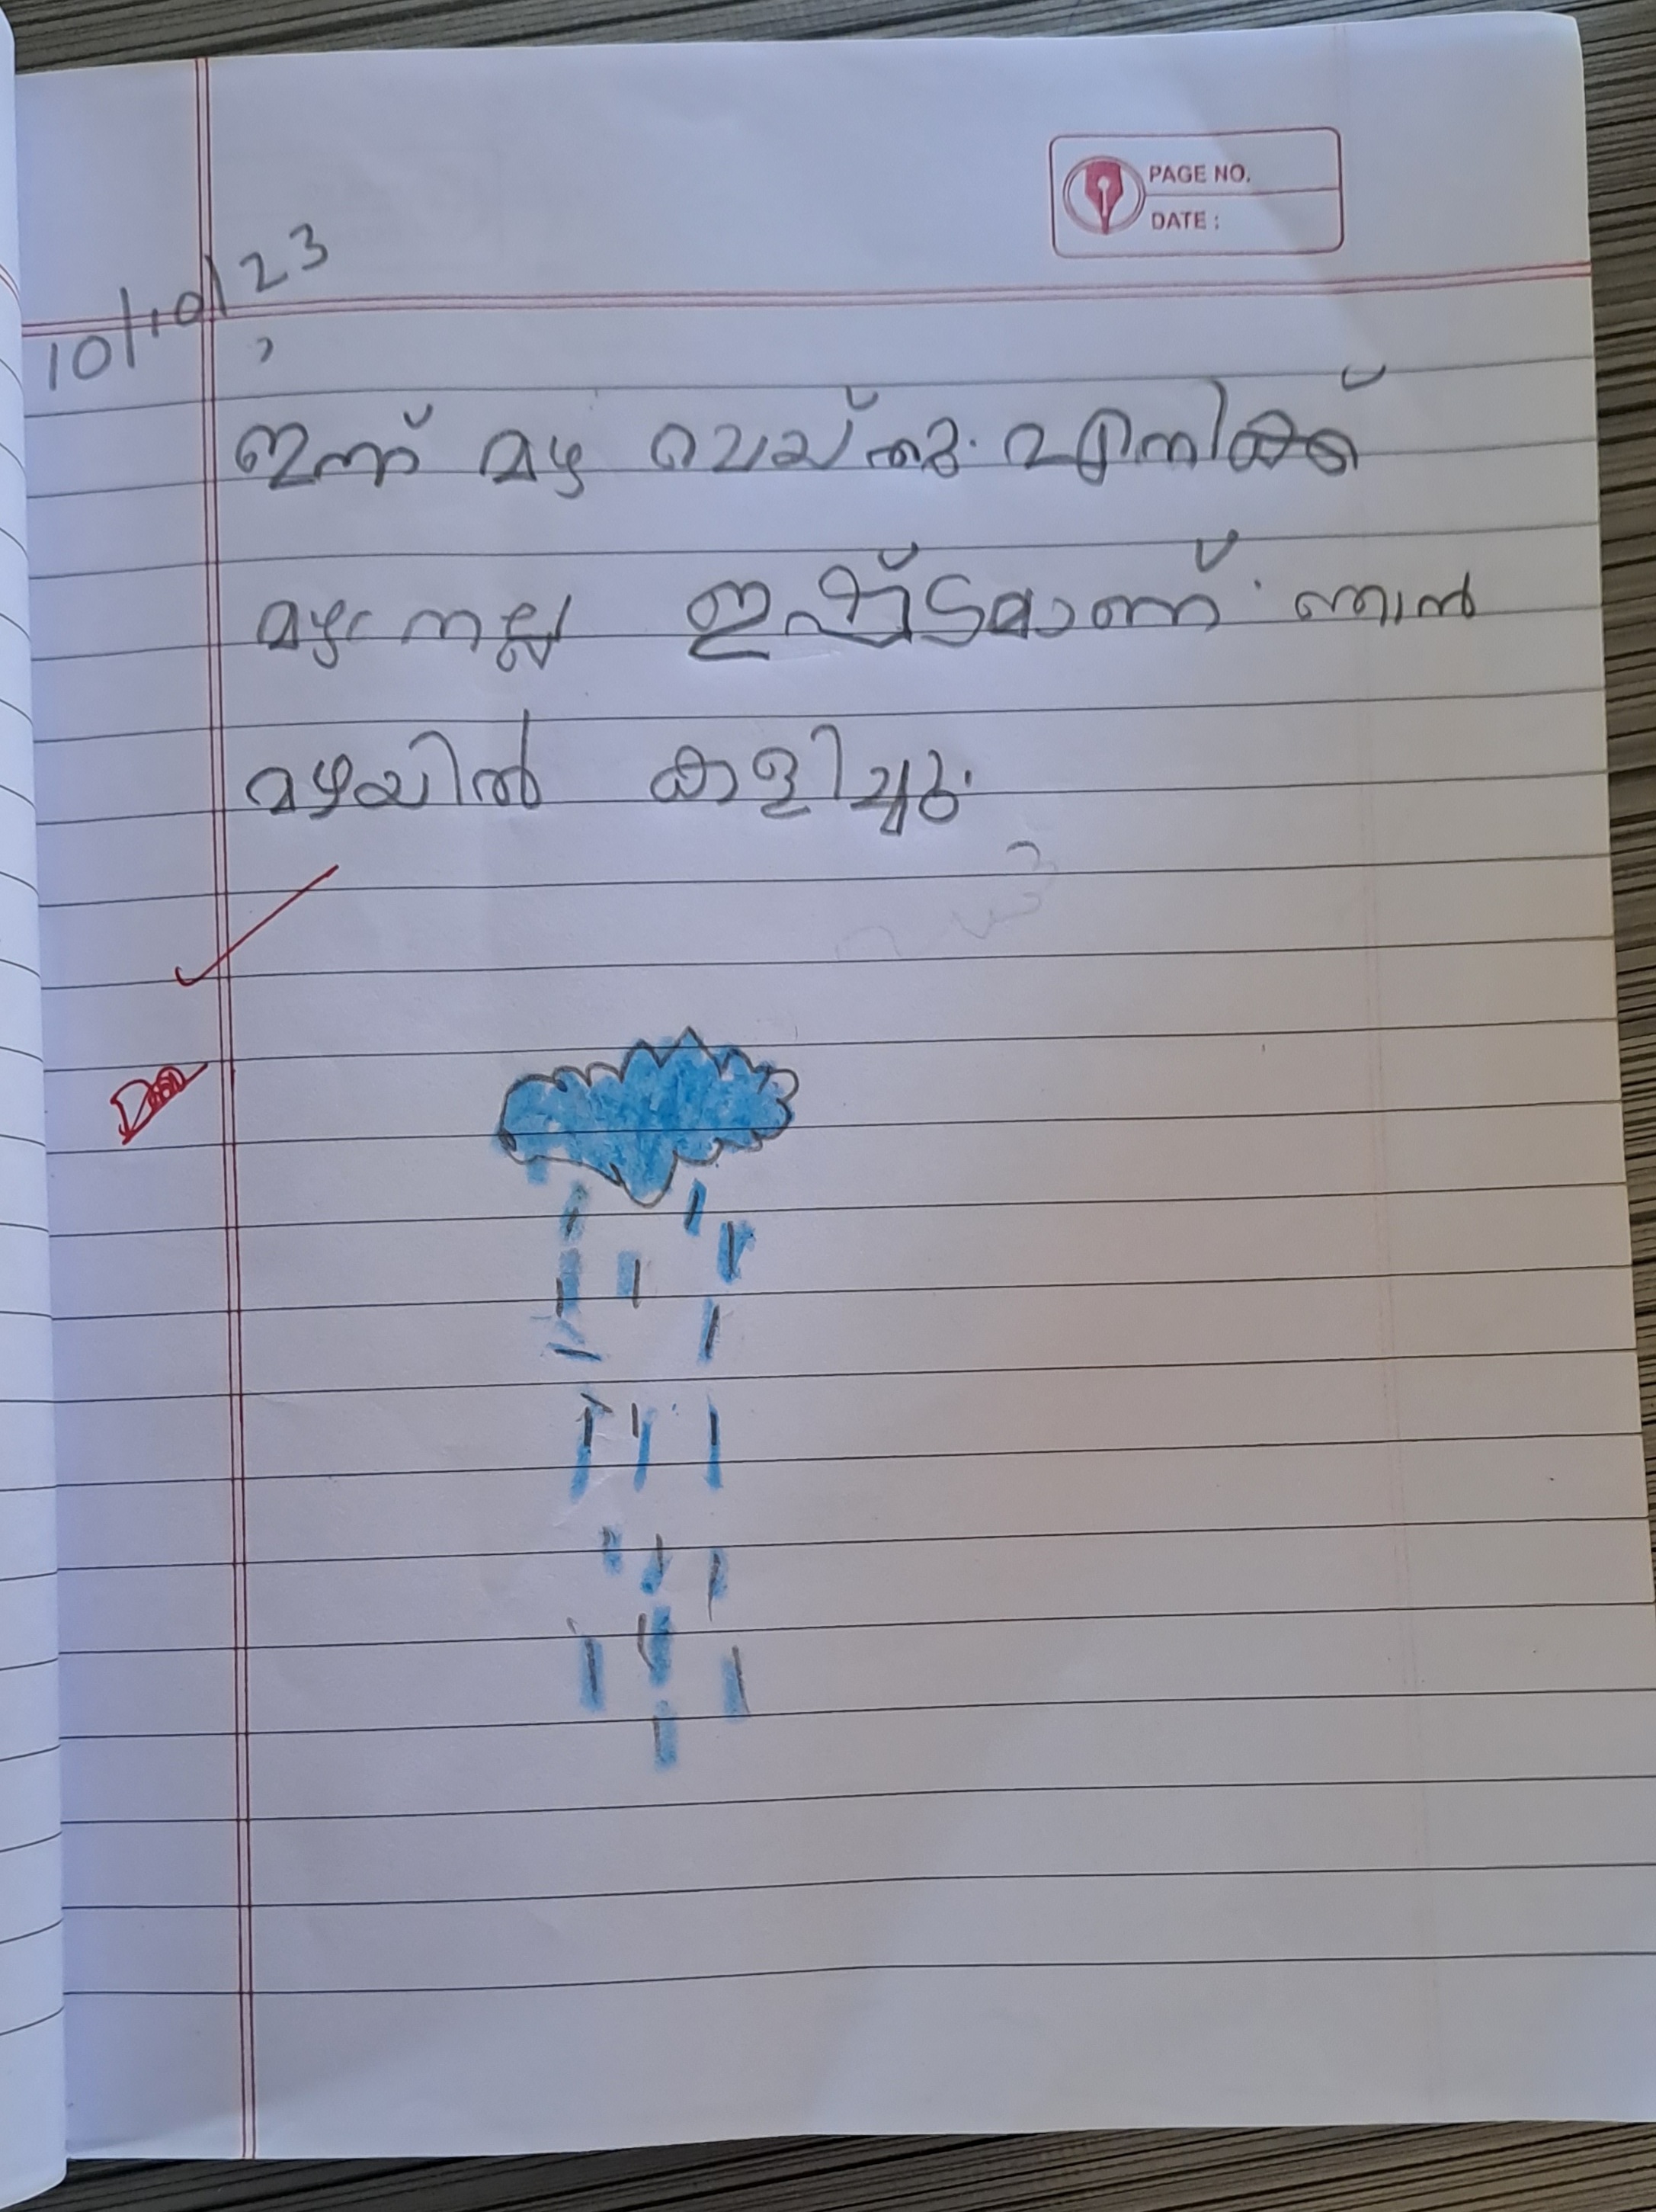 PAGE NO.
DATE :
10/10/23
ഇന്ന് മഴ പെയ്തു. എനിക്ക്
മഴ നല്ല ഇഷ്ടമാണ്. ഞാൻ
മഴയിൽ കളിച്ചു.